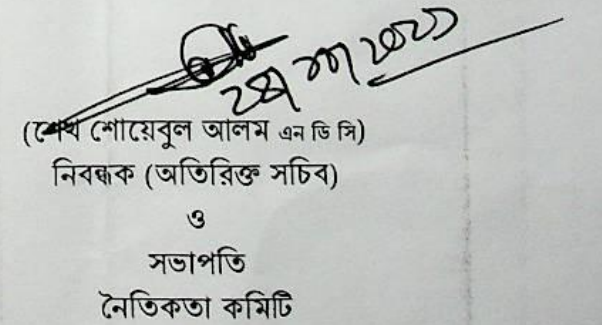 (শেখ শোয়েবুল আলম এন ডি সি)
নিবন্ধক (অতিরিক্ত সচিব)
ও
সভাপতি
নৈতিকতা কমিটি